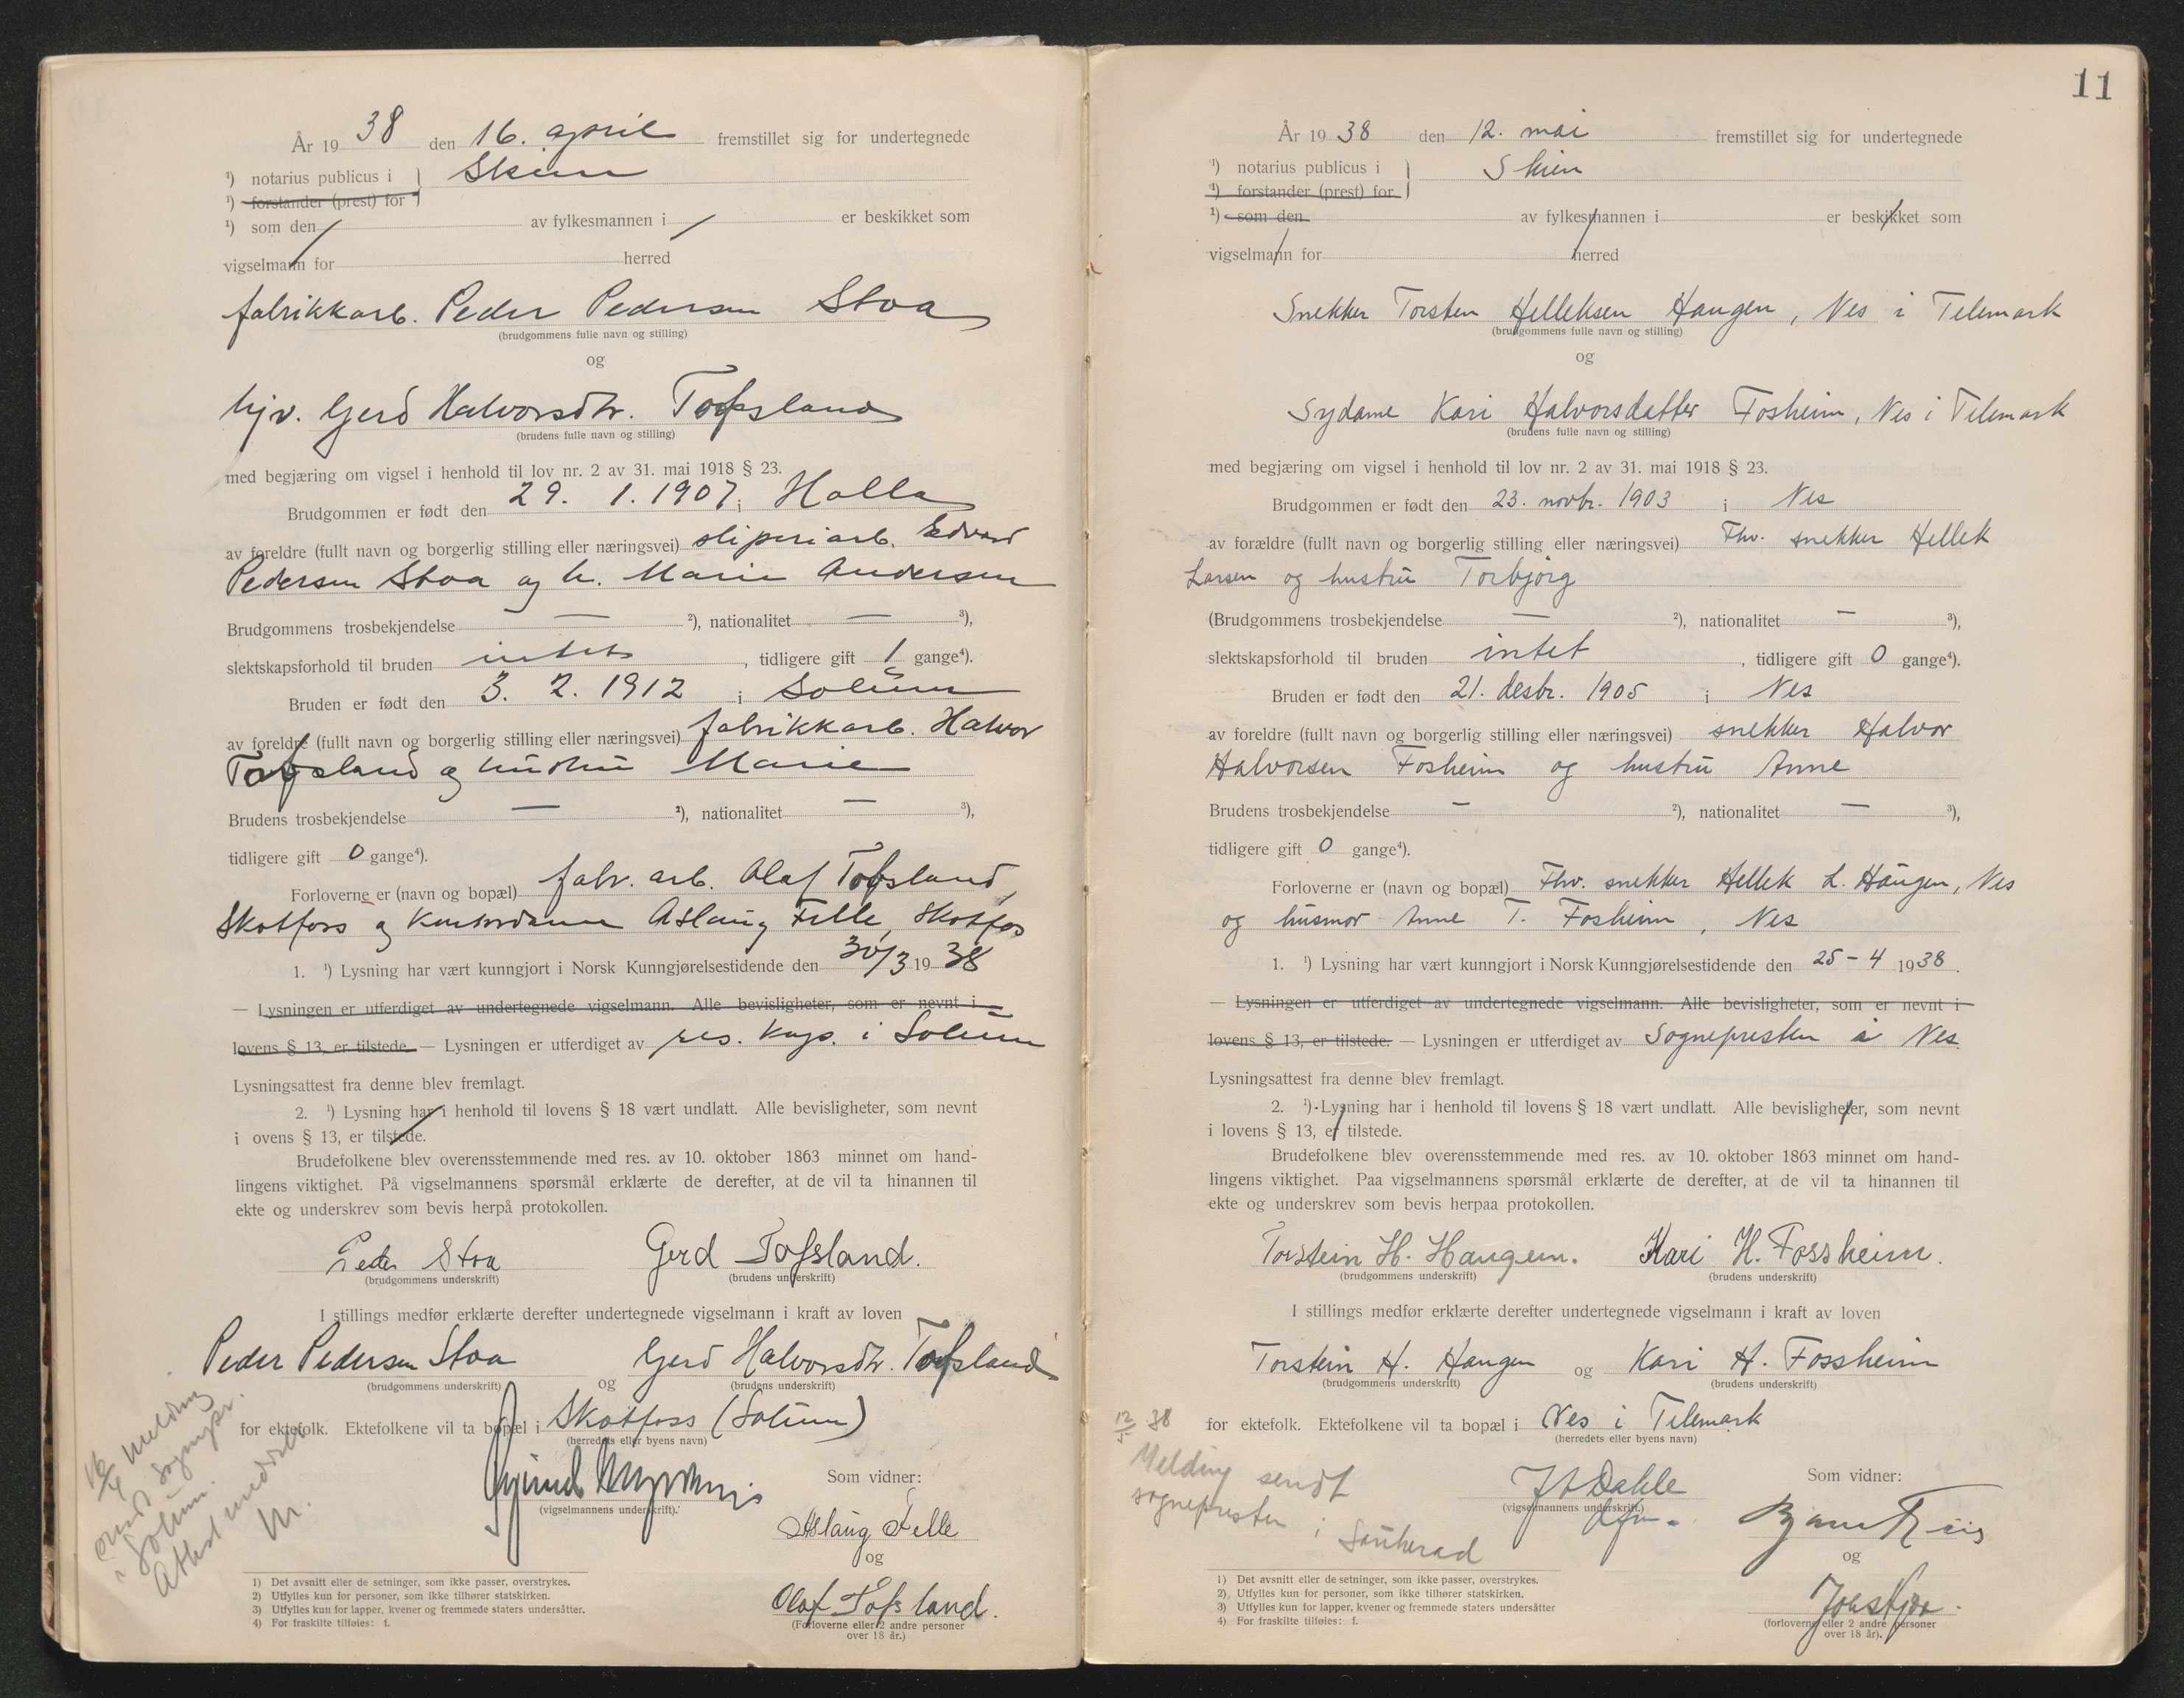 År 19 38 den 16. april fremstillet sig for undertegnede
¹) notarius publicus i } Skien
¹) forstander (prest) for
¹) som den av fylkesmannen i er beskikket som
vigselmann for herred
fabrikkarb. Peder Pedersen Stoa
(brudgommens fulle navn og stilling)
og
hjv. Gerd Halvorsdtr. Tofsland
(brudens fulle navn og stilling)
med begjæring om vigsel i henhold til lov nr. 2 av 31. mai 1918 § 23.
Brudgommen er født den 29. 1. 1907 i Holla
av foreldre (fullt navn og borgerlig stilling eller næringsvei) sliperiarb. Edvard
Pedersen Stoa og h. Marie Andersen
Brudgommens trosbekjendelse — ²), nationalitet — ³),
slektskapsforhold til bruden intet, tidligere gift 1 gange⁴).
Bruden er født den 3. 2. 1912 i Solum
av foreldre (fullt navn og borgerlig stilling eller næringsvei) fabrikkarb. Halvor
Tofsland og hustru Marie
Brudens trosbekjendelse — ²), nationalitet — ³),
tidligere gift 0 gange⁴).
Forloverne er (navn og bopæl) fabr. arb. Olaf Tofsland,
Skotfoss og kontordame Aslaug Felle, Skotfos
1. ¹) Lysning har vært kunngjort i Norsk Kunngjørelsestidende den 30/3 19 38
— Lysningen er utferdiget av undertegnede vigselmann. Alle bevisligheter, som er nevnt i
lovens § 13, er tilstede. — Lysningen er utferdiget av res. kap. i Solum
Lysningsattest fra denne blev fremlagt.
2. ¹) Lysning har i henhold til lovens § 18 vært undlatt. Alle bevisligheter, som nevnt
i ovens § 13, er tilstede.
Brudefolkene blev overensstemmende med res. av 10. oktober 1863 minnet om hand-
lingens viktighet. På vigselmannens spørsmål erklærte de derefter, at de vil ta hinannen til
ekte og underskrev som bevis herpå protokollen.
Peder Stoa Gerd Tofsland.
(brudgommens underskrift) (brudens underskrift)
I stillings medfør erklærte derefter undertegnede vigselmann i kraft av loven
Peder Pedersen Stoa og Gerd Halvorsdtr. Tofsland
(brudgommens underskrift) (brudens underskrift)
for ektefolk. Ektefolkene vil ta bopæl i Skotfoss (Solum)
(herredets eller byens navn)
Som vidner:
(vigselmannens underskrift).
Aslaug Felle
og
Olaf Tofsland.
(Forloverne eller 2 andre personer
over 18 år.)
16/4 melding
sendt sognepr.
i Solum.
Attest meddelt
M.
1) Det avsnitt eller de setninger, som ikke passer, overstrykes.
2) Utfylles kun for personer, som ikke tilhører statskirken.
3) Utfylles kun for lapper, kvener og fremmede staters undersåtter.
4) For fraskilte tilføies: f.
11
År 19 38 den 12. mai fremstillet sig for undertegnede
¹) notarius publicus i } Skien
¹) forstander (prest) for
¹) som den av fylkesmannen i er beskikket som
vigselmann for herred
Snekker Torsten Helleksen Haugen, Nes i Telemark
(brudgommens fulle navn og stilling)
og
Sydame Kari Halvorsdatter Fosheim, Nes i Telemark
(brudens fulle navn og stilling)
med begjæring om vigsel i henhold til lov nr. 2 av 31. mai 1918 § 23.
Brudgommen er født den 23. novbr. 1903 i Nes
av forældre (fullt navn og borgerlig stilling eller næringsvei) Fhv. snekker Hellek
Larsen og hustru Torbjørg
(Brudgommens trosbekjendelse — ²), nationalitet — ³),
slektskapsforhold til bruden intet, tidligere gift 0 gange⁴).
Bruden er født den 21. desbr. 1905 i Nes
av foreldre (fullt navn og borgerlig stilling eller næringsvei) snekker Halvor
Halvorsen Fosheim og hustru Anne
Brudens trosbekjendelse — ²), nationalitet — ³),
tidligere gift 0 gange⁴).
Forloverne er (navn og bopæl) Fhv. snekker Hellek L. Haugen, Nes
og husmor Anne T. Fosheim, Nes
1. ¹) Lysning har vært kunngjort i Norsk Kunngjørelsestidende den 25 - 4 1938.
— Lysningen er utferdiget av undertegnede vigselmann. Alle bevisligheter, som er nevnt i
lovens § 13, er tilstede. — Lysningen er utferdiget av Sognepresten i Nes.
Lysningsattest fra denne blev fremlagt.
2. ¹) Lysning har i henhold til lovens § 18 vært undlatt. Alle bevisligheter, som nevnt
i lovens § 13, er tilstede.
Brudefolkene blev overensstemmende med res. av 10. oktober 1863 minnet om hand-
lingens viktighet. Paa vigselmannens spørsmål erklærte de derefter, at de vil ta hinannen til
ekte og underskrev som bevis herpaa protokollen.
Torstein H. Haugen. Kari H. Fossheim.
(brudgommens underskrift) (brudens underskrift)
I stillings medfør erklærte derefter undertegnede vigselmann i kraft av loven
Torstein H. Haugen og Kari H. Fossheim
(brudgommens underskrift) (brudens underskrift)
for ektefolk. Ektefolkene vil ta bopæl i Nes i Telemark
(herredets eller byens navn)
12/5 38
Melding sendt
sognepresten i Sauherad
Dahle
(vigselmannens underskrift.)
Som vidner:
og
(forloverne eller 2 andre personer
over 18 år).
1) Det avsnitt eller de setninger, som ikke passer, overstrykes.
2) Utfylles kun for personer, som ikke tilhører statskirken.
3) Utfylles kun for lapper, kvener og fremmede staters undersåtter
4) For fraskilte tilføies: f.